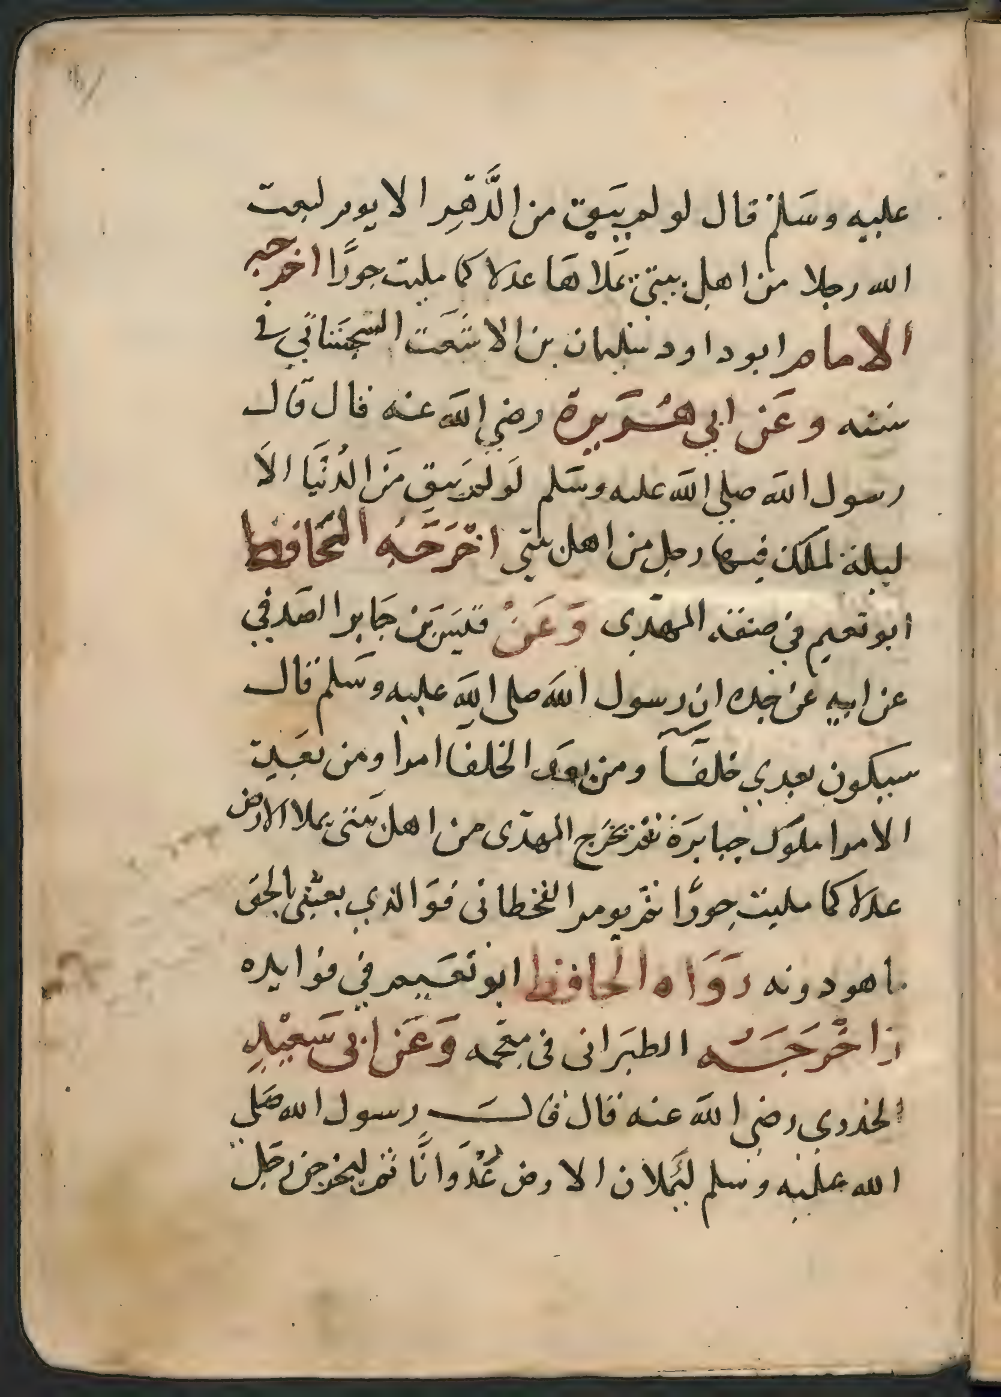 عليه وسَلم قال لو لم يبَق من الدَّهرِ الا يوم لبعث
الله رجلا من اهل بيتي يَملاهَا عدلا كما مليت جورًا اخرجه
الامام ابو داود سليمان بن الاشعَث السجِستَاني في
سننه وعَن ابي هُرَيرة رضي الله عنه قال قال
رسول الله صلي الله عليه وسَلم لَو لم يَبق مَن الدُنيَا الاَ
ليلة لملك فيها رجل من اهل بيتي اخْرَجَهُ الحَافظ
ابو نعيم في صفة المهدى وَعَنْ قيسَ بن جَابر الصَدفي
عن ابيه عن جده ان رسول الله صلى الله عليه وسَلم قال
سيكون بعدي خلفآ ومن بعد الخلفا امرا ومن بعَد
الامرا ملوك جبابرَة ثم يخرَج المهدى من اهل بَيتى يملا الارض
عدلا كما مليت جورًا ثم يومر القحطانى فوَ الذي بعثنى بالحق
ما هو دونه رَوَاه الحافظ ابو نعَيم في فوايده
واخْرَجَهُ الطبَرانى فى معجمه وَعَن ابى سَعيْدِ
الخدري رضي الله عنه قال قال رسول الله صَلي
الله عليه وسلم ليَملان الارض عُدْوَانًا ثم ليخرجن رجل